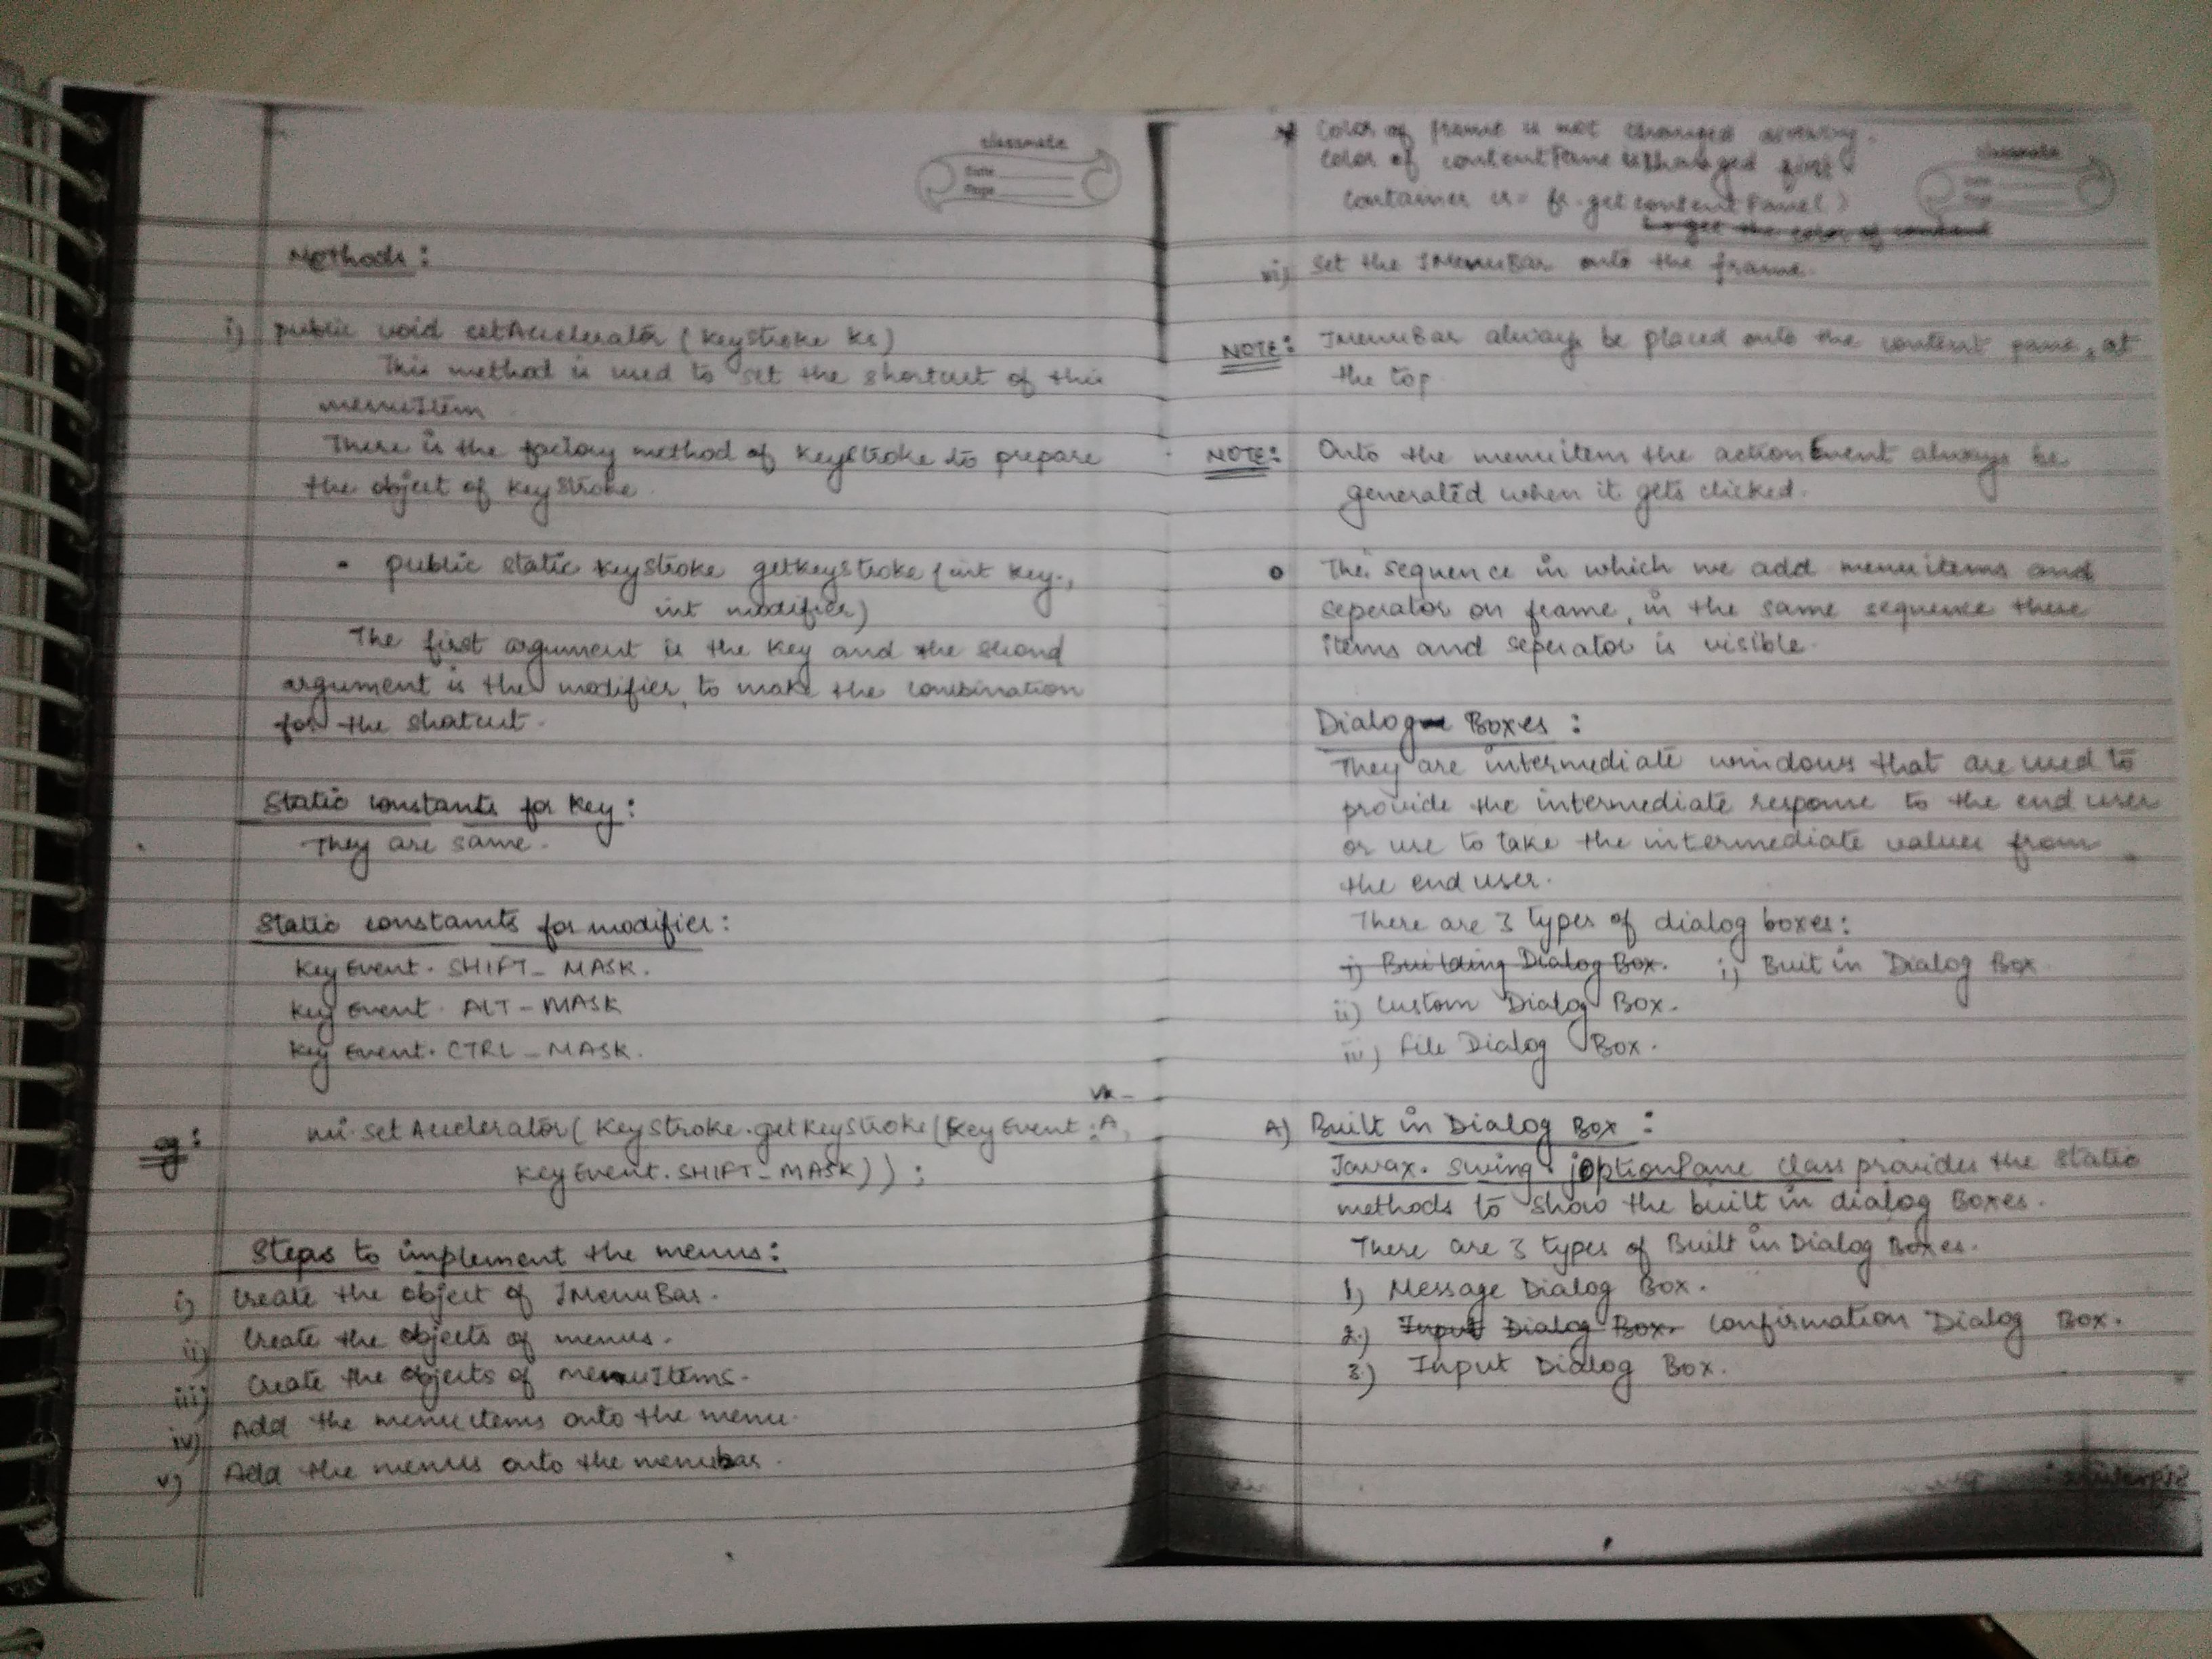 classmate
Date
Page
Methods :
i) public void setAccelerator (KeyStroke Ks)
This method is used to set the shortcut of this
menuItem
There is the factory method of KeyStroke to prepare
the object of KeyStroke.
• public static KeyStroke getKeystroke (int Key.,
int modifier)
The first argument is the Key and the second
argument is the modifier, to make the combination
for the shatcut.
Static constants for Key :
They are same.
Static constants for modifier :
KeyEvent. SHIFT_MASK.
Key Event. ALT-MASK
Key Event. CTRL_MASK.
VK_
eg: mi.setAccelerator( KeyStroke.getKeyStroke(KeyEvent.A,
KeyEvent.SHIFT_MASK)) ;
Steps to implement the menus :
i) Create the object of JMenuBar.
ii) Create the objects of menus.
iii) Create the objects of menuItems.
iv) Add the menuitems onto the menu.
v) Add the menus onto the menubar.
classmate
* Color of frame is not changed
Color of contentPane is changed first
Container = fr.getContentPane( )
to get the color of content
vi) Set the JMenuBar onto the frame.
NOTE: JmenuBar always be placed onto the content pane, at
the top
NOTE: Onto the menuitem the actionEvent always be
generated when it gets clicked.
o The sequence in which we add menuitems and
seperator on frame, in the same sequence these
items and seperator is visible.
Dialog Boxes :
They are intermediate windows that are used to
provide the intermediate response to the end user
or use to take the intermediate values from
the end user.
There are 3 types of dialog boxes:
i) Building Dialog Box. i) Built in Dialog Box
ii) Custom Dialog Box.
iii) File Dialog Box.
A) Built in Dialog Box :
Javax. swing. jOptionPane class provides the static
methods to show the built in dialog Boxes.
There are 3 types of Built in Dialog Boxes.
1) Message Dialog Box.
2.) Input Dialog Box. Confirmation Dialog Box.
3.) Input Dialog Box.